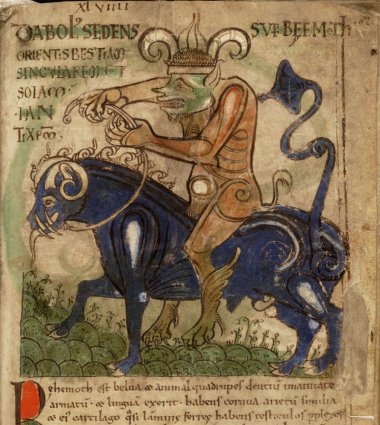 XLVIIII
DIABOL' SEDENS SUP BEEMOTH
ORIENTIS BESTIAM
SINGULAREM ET
SOLA
.I. AN
TIXPO
Behemoth est belua & animal quadrupes dentiu imanitate
armatu & lingua exerit. habens cornua arietu similia
& ei cartilago qsi lamine ferree habens testiculos